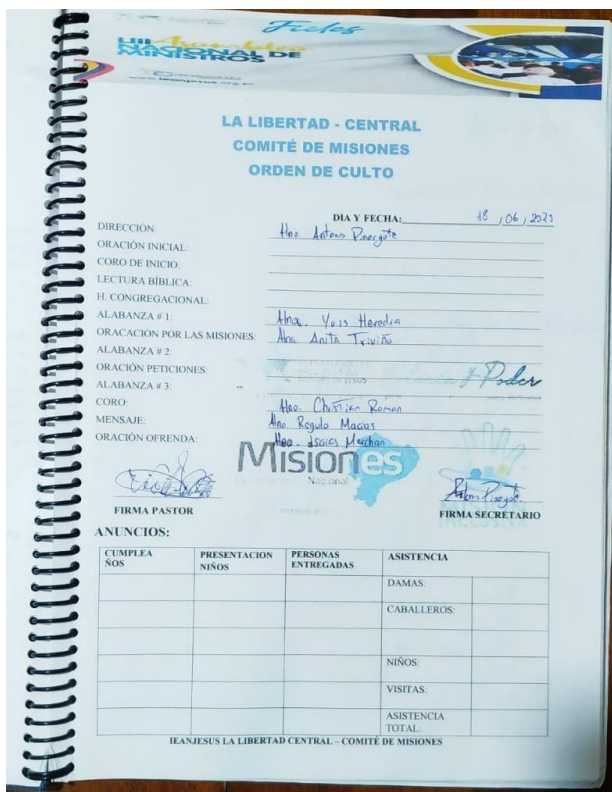 Fieles
LIII Asamblea
NACIONAL DE
MINISTROS
LA LIBERTAD - CENTRAL
COMITÉ DE MISIONES
ORDEN DE CULTO
DIA Y FECHA: 18 , 06 , 2023
DIRECCIÓN: Hno Antono Pinargote
ORACIÓN INICIAL:
CORO DE INICIO:
LECTURA BÍBLICA:
H. CONGREGACIONAL:
ALABANZA # 1: Hna. Yuis Heredia
ORACACIÓN POR LAS MISIONES: Hna Anita Triviño
ALABANZA # 2:
ORACIÓN PETICIONES: y Poder
ALABANZA # 3:
CORO: Hno. Christian Roman
MENSAJE: Hno Regulo Macias
ORACIÓN OFRENDA: Hno. Isaias Merchan
Misiones
Nacional
FIRMA PASTOR FIRMA SECRETARIO
ANUNCIOS:
CUMPLEA
ÑOS PRESENTACION
NIÑOS PERSONAS
ENTREGADAS ASISTENCIA
DAMAS:
CABALLEROS:
NIÑOS:
VISITAS:
ASISTENCIA
TOTAL:
IEANJESUS LA LIBERTAD CENTRAL – COMITÉ DE MISIONES